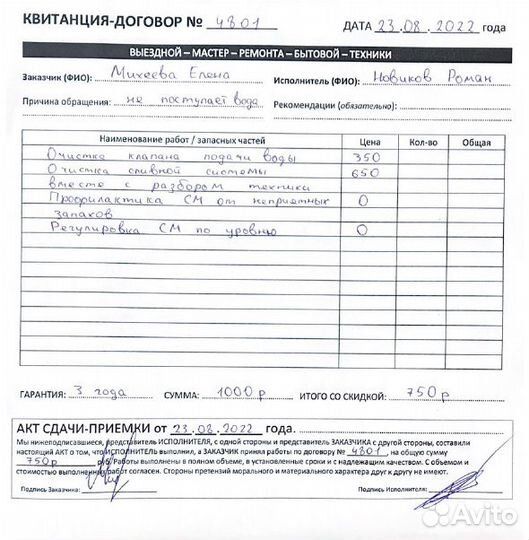 КВИТАНЦИЯ-ДОГОВОР № 4801 ДАТА 23.08.2022 года
ВЫЕЗДНОЙ – МАСТЕР – РЕМОНТА – БЫТОВОЙ – ТЕХНИКИ
Заказчик (ФИО): Михеева Елена Исполнитель (ФИО): Новиков Роман
Причина обращения: не поступает вода Рекомендации (обязательно):
Наименование работ / запасных частей Цена Кол-во Общая
Очистка клапана подачи воды 350
Очистка сливной системы 650
вместе с разбором техники
Профилактика СМ от неприятных 0
запахов
Регулировка СМ по уровню 0
ГАРАНТИЯ: 3 года СУММА: 1000 р ИТОГО СО СКИДКОЙ: 750 р
АКТ СДАЧИ-ПРИЕМКИ от 23.08.2022 года.
Мы нижеподписавшиеся, представитель ИСПОЛНИТЕЛЯ, с одной стороны и представитель ЗАКАЗЧИКА с другой стороны, составили
настоящий АКТ о том, что ИСПОЛНИТЕЛЬ выполнил, а ЗАКАЗЧИК принял работы по договору № 4801, на общую сумму
750р руб. Работы выполнены в полном объеме, в установленные сроки и с надлежащим качеством. С объемом и
стоимостью выполненных работ согласен. Стороны претензий морального и материального характера друг к другу не имеют.
Подпись Заказчика: Подпись Исполнителя:
Avito